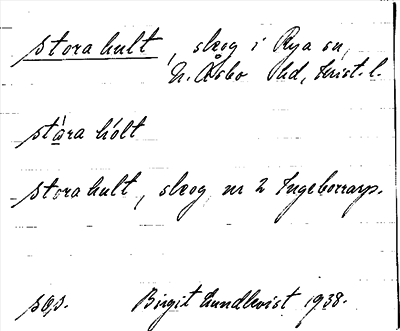 stora hult, skog i Rya sn,
N. Åsbo hd, Krist. l.
stàra hólt
stora hult, skog nr 2 Ingeborrarp.
sep. Birgit Lundkvist 1938.